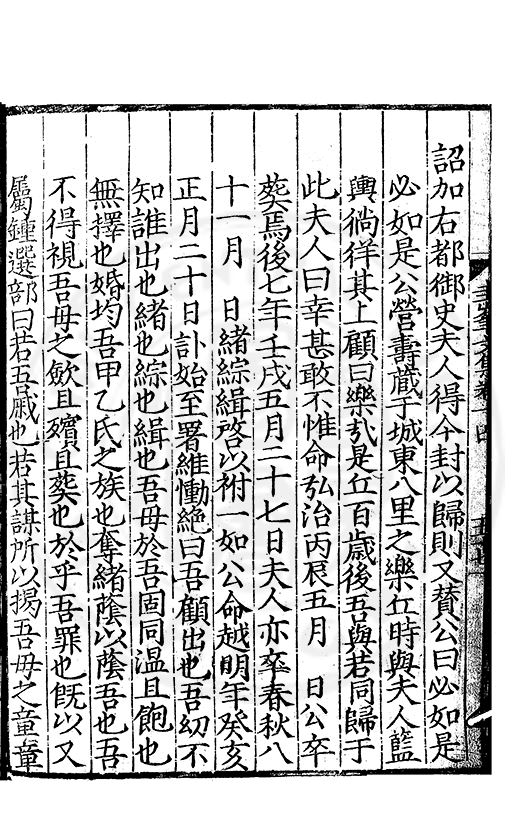 詔加右都御史夫人得今封以歸則又賛公曰必如是
必如是公營壽藏于城東八里之樂丘時與夫人籃
輿徜徉其上顧曰樂哉是丘百歲後吾與若同歸于
此夫人曰幸甚敢不惟命弘治丙辰五月　日公卒
葬焉後七年壬戌五月二十七日夫人亦卒春秋八
十一月　日緒綜緝啓以祔一如公命越明年癸亥
正月二十日訃始至署維慟絶曰吾顧出也吾幼不
知誰出也緒也綜也緝也吾母於吾固同溫且飽也
無擇也婚均吾甲乙氏之族也奪緒蔭以蔭吾也吾
不得視吾母之斂且殯且葬也於乎吾罪也旣以又
屬鍾選部曰若吾戚也若其謀所以揭吾母之童童